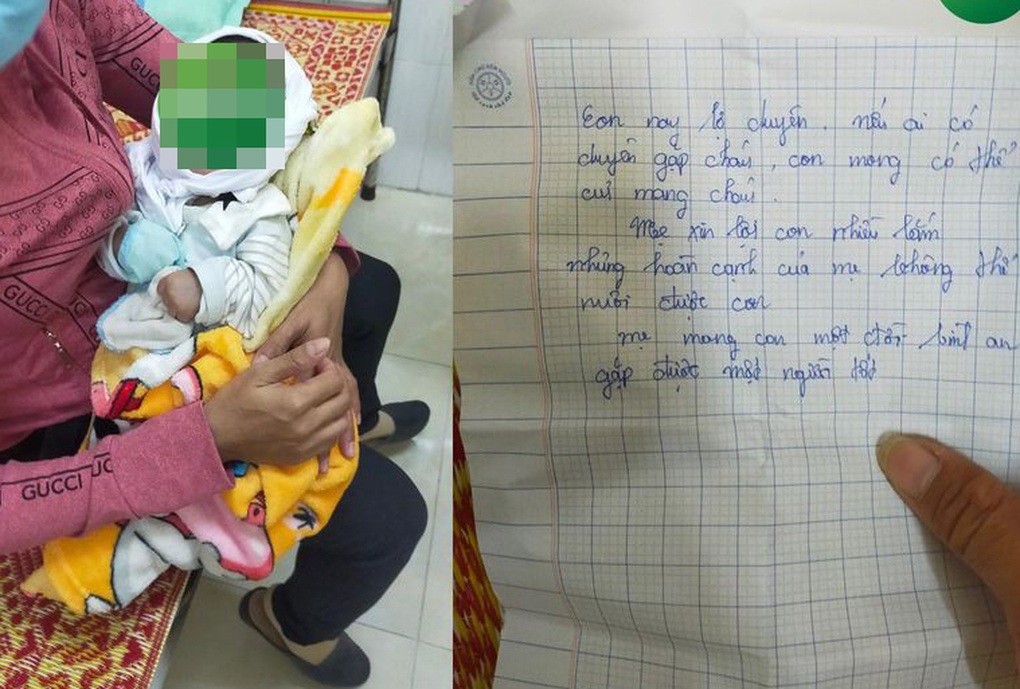 GUCCI
GUCCI
GUCCI
GUCCI
Con nay lỡ chuyến. nếu ai có
duyên gặp cháu, con mong có thể
cưu mang cháu.
Mẹ xin lỗi con nhiều lắm
nhưng hoàn cạnh của mẹ không thể
nuôi được con
mẹ mong con một đời bình an
gặp được một người tốt